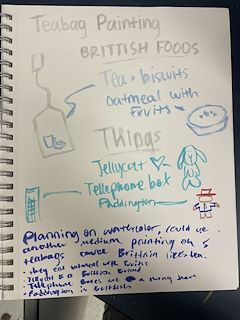 Teabag Painting
BRITTISH FOODS
Tea + biscuits
oatmeal with
fruits
Things
Jellycat
Tellephone box
Paddington
Planning on watercolor, could use
another medium, painting on 5
teabags cause Brittain likes tea.
- they eat oatmeal with fruits
- Jellycat is a Brittish Brand
- Tellephone Boxes are a thing there
- Paddington is Brittish